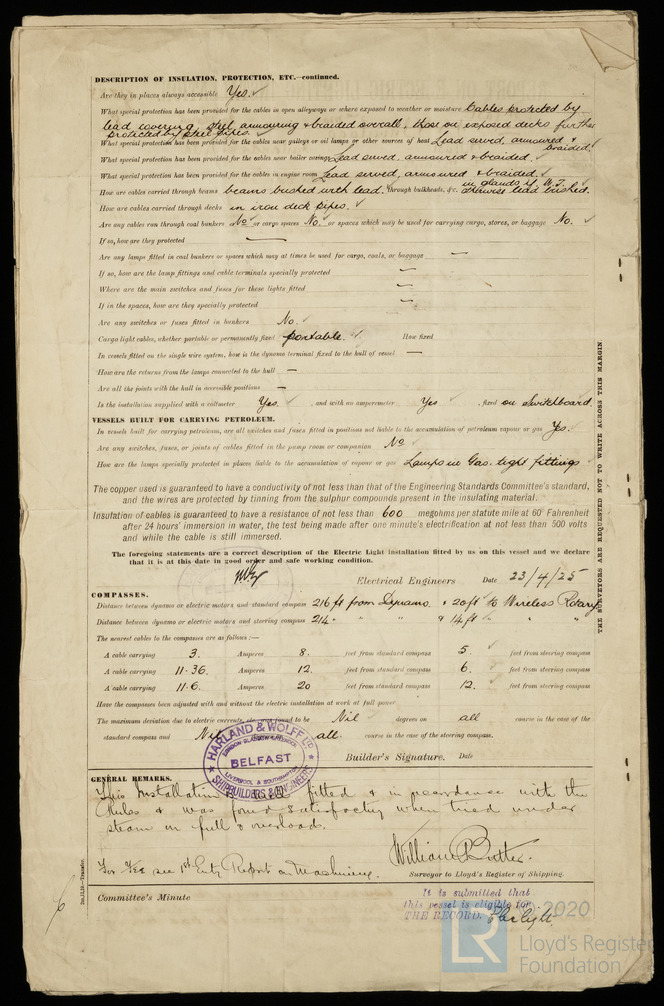 DESCRIPTION OF INSULATION, PROTECTION, ETC.—continued.
Are they in places always accessible Yes.
What special protection has been provided for the cables in open alleyways or where exposed to weather or moisture Cables protected by
lead covering, steel armouring & braided overall, those on exposed decks further
protected by steel pipes.
What special protection has been provided for the cables near galleys or oil lamps or other sources of heat Lead served, armoured & braided.
What special protection has been provided for the cables near boiler casings Lead served, armoured & braided.
What special protection has been provided for the cables in engine room Lead served, armoured & braided.
How are cables carried through beams beams bushed with lead. through bulkheads, &c. in glands if W.T. otherwise lead bushed.
How are cables carried through decks in iron deck pipes.
Are any cables run through coal bunkers No or cargo spaces No. or spaces which may be used for carrying cargo, stores, or baggage No.
If so, how are they protected —
Are any lamps fitted in coal bunkers or spaces which may at times be used for cargo, coals, or baggage —
If so, how are the lamp fittings and cable terminals specially protected —
Where are the main switches and fuses for these lights fitted —
If in the spaces, how are they specially protected —
Are any switches or fuses fitted in bunkers No.
Cargo light cables, whether portable or permanently fixed portable. How fixed
In vessels fitted on the single wire system, how is the dynamo terminal fixed to the hull of vessel —
How are the returns from the lamps connected to the hull —
Are all the joints with the hull in accessible positions —
Is the installation supplied with a voltmeter Yes. and with an amperemeter Yes , fixed on Switchboard.
VESSELS BUILT FOR CARRYING PETROLEUM.
In vessels built for carrying petroleum, are all switches and fuses fitted in positions not liable to the accumulation of petroleum vapour or gas Yes.
Are any switches, fuses, or joints of cables fitted in the pump room or companion No
How are the lamps specially protected in places liable to the accumulation of vapour or gas Lamps in Gas. tight fittings
The copper used is guaranteed to have a conductivity of not less than that of the Engineering Standards Committee's standard,
and the wires are protected by tinning from the sulphur compounds present in the insulating material.
Insulation of cables is guaranteed to have a resistance of not less than 600 megohms per statute mile at 60° Fahrenheit
after 24 hours' immersion in water, the test being made after one minute's electrification at not less than 500 volts
and while the cable is still immersed.
The foregoing statements are a correct description of the Electric Light installation fitted by us on this vessel and we declare
that it is at this date in good order and safe working condition.
Electrical Engineers Date 23/4/25
COMPASSES.
Distance between dynamo or electric motors and standard compass 216 ft from Dynamo. & 20 ft to Wireless Rotary
Distance between dynamo or electric motors and steering compass 214 " " " & 14 ft " " "
The nearest cables to the compasses are as follows:—
A cable carrying 3. Amperes 8. feet from standard compass 5. feet from steering compass
A cable carrying 11.36. Amperes 12. feet from standard compass 6. feet from steering compass
A cable carrying 11.6. Amperes 20 feet from standard compass 12. feet from steering compass
Have the compasses been adjusted with and without the electric installation at work at full power
The maximum deviation due to electric currents, etc., was found to be Nil degrees on all course in the case of the
standard compass and Nil all. course in the case of the steering compass.
HARLAND & WOLFF LTD
BELFAST
LIVERPOOL & SOUTHAMPTON
SHIPBUILDERS & ENGINEERS
Builder's Signature. Date
GENERAL REMARKS.
This Installation is well fitted & in accordance with the
Rules & was found satisfactory when tried under
steam on full & overloads.
For Fee see 1st Entry Report on Machinery.
Surveyor to Lloyd's Register of Shipping.
Committee's Minute
It is submitted that
this vessel is eligible for
THE RECORD.
THE SURVEYORS ARE REQUESTED NOT TO WRITE ACROSS THIS MARGIN.
© 2020
LR
Lloyd's Register
Foundation